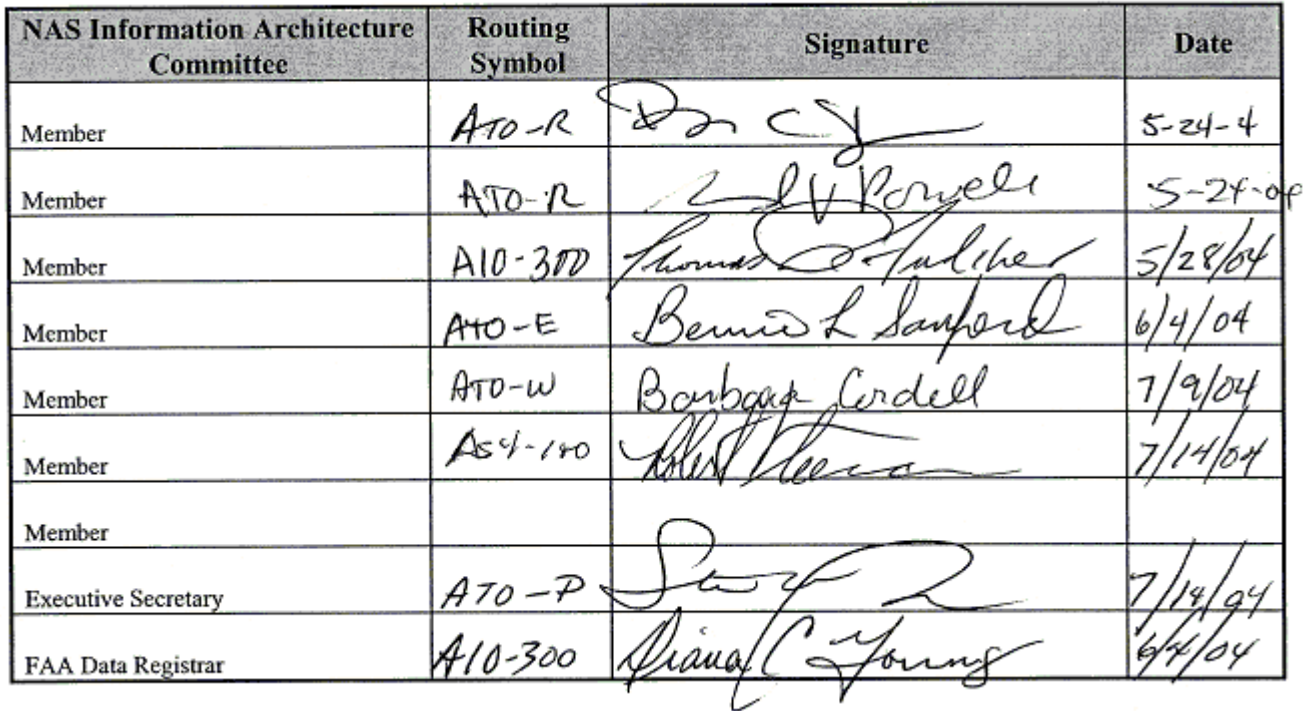 NAS Information Architecture Committee Routing Symbol Signature Date
Member ATO-R 5-24-4
Member ATO-R Powell 5-24-04
Member AIO-300 Thomas Fulcher 5/28/04
Member ATO-E Bernie L Sanford 6/4/04
Member ATO-W Barbara Cordell 7/9/04
Member Robert 7/14/04
Member
Executive Secretary ATO-P 7/14/04
FAA Data Registrar AIO-300 Diana C Young 6/4/04